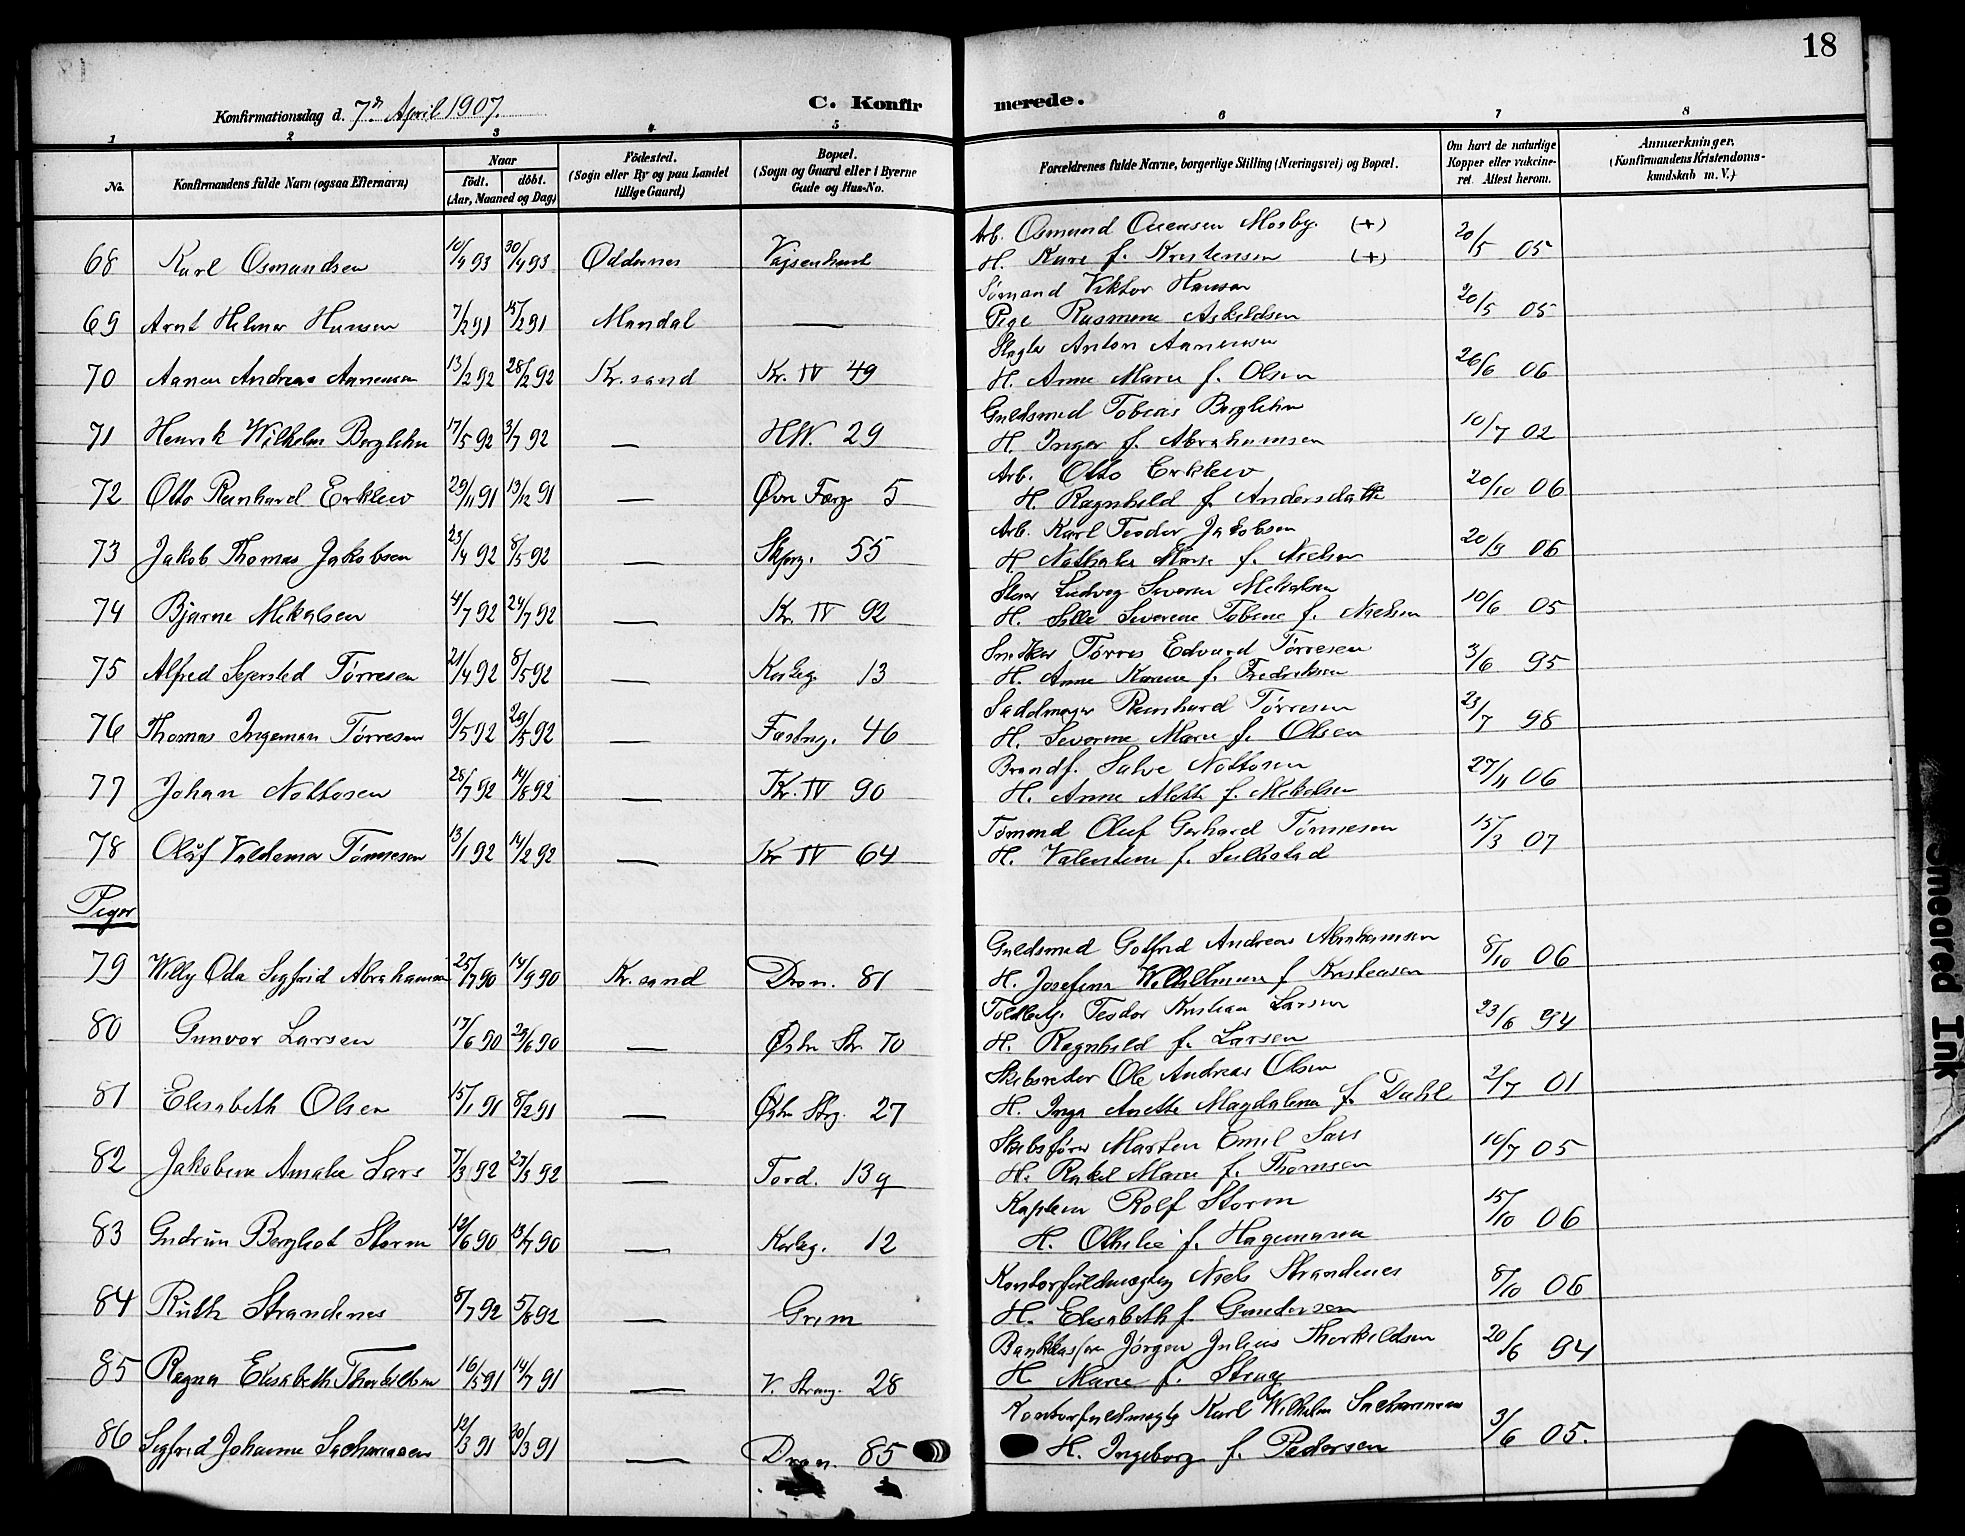 18
Konfirmationsdag d. 7de April 1907.
C. Konfirmerede.
1 2 3 4 5 6 7 8
No. Konfirmandens fulde Navn (ogsaa Efternavn) Naar Födt. döbt. (Aar, Maaned og Dag) Födested. (Sogn eller By og paa Landet tillige Gaard) Bopæl. (Sogn og Gaard eller i Byerne Gade og Hus-No. Forældrenes fulde Navne, borgerlige Stilling (Næringsvei) og Bopæl. Om havt de naturlige Kopper eller vakcineret. Attest herom. Anmærkninger. (Konfirmandens Kristendomskundskab m. V.)
Arb. Osmund Mosby (+)
68 Karl Osmundsen 10/4 93 30/4 93 Oddernes Vajsenhuset H. Kare f. Kristensen (+) 20/5 05
Sømand Viktor Hansen
69 Arnt Helmer Hansen 7/2 91 15/2 91 Mandal — Pige Rasmine Askildsen 20/5 05
Slagter Anton Aanensen
70 Aanen Andreas Aanensen 13/2 92 28/2 92 Kr.sand Kr. IV 49 H. Anne Marie f. Olsen 26/6 06
Guldsmed Tobias Berglihn
71 Henrik Wilhelm Berglihn 17/5 92 3/7 92 — H.W. 29 H. Inger f. Abrahamsen 10/7 02
Arb. Otto Erklev
72 Otto Reinhard Erklev 29/11 91 13/12 91 — Øvre Færg. 5 H. Ragnhild f. Andersdatter 20/10 06
Arb. Karl Teodor Jakobsen
73 Jakob Thomas Jakobsen 23/4 92 8/5 92 — 55 H. Nathalie Marie f. Nielsen 20/9 06
Ludvig Severin Mikalsen
74 Bjarne Mikalsen 4/7 92 24/7 92 — Kr. IV 92 H. Sille Severine Tobine f. Nielsen 10/6 05
Snedker Tørres Edvard Tørresen
75 Alfred Sejersted Tørresen 21/4 92 8/5 92 — Korleg. 13 H. Anne Karine f. Fredriksen 3/6 95
Sadelmager Reinhard Tørresen
76 Thomas Ingeman Tørresen 9/5 92 29/5 92 — Fæstng. 46 H. Severine Marie f. Olsen 23/7 98
Brandf. Salve Nottosen
77 Johan Nottosen 28/7 92 14/8 92 — Kr. IV 90 H. Anne Mette f. Mikalsen 27/11 06
Tømmd Oluf Gerhard Tønnesen
78 Olaf Valdemar Tønnesen 13/1 92 14/2 92 — Kr IV 64 H. Valentine f. 15/3 07
Piger
Guldsmed Gotfred Andreas Abrahamsen
79 Willy Oda Sigfrid Abrahamsen 25/7 90 14/9 90 Kr.sand Dron. 81 H. Josefine Wilhelmine f. Kristensen 8/10 06
Toldbetj. Teodor Kristian Larsen
80 Gunvor Larsen 17/6 90 29/6 90 — Østre Str. 70 H. Ragnhild f. Larsen 23/6 94
Skibsreder Ole Andreas Olsen
81 Elisabeth Olsen 15/1 91 8/2 91 — Østre Strg. 27 H. Inga Anette Magdalena f. Dahl 2/7 01
Skibsfører Morten Emil Sars
82 Jakobine Amalie Sars 7/3 92 27/3 92 — Tord. 13 g H. Rakel Marie f. Thomsen 10/7 05
Kaptein Rolf Storm
83 Gudrun Bergliot Storm 12/6 90 13/7 90 — Korleg. 12 H. Othilie f. Hagemann 15/10 06
Kontorfuldmægtig Niels Strandenes
84 Ruth Strandenes 8/7 92 5/8 92 — Grim H. Elisabeth f. Gundersen 8/10 06
Bankkasserer Jørgen Julius Thorkildsen
85 Ragna Elisabeth Thorkildsen 16/5 91 14/7 91 — V. Strang. 28 H. Marie f. Stray 20/6 94
Kontorfuldmægtg Karl Wilhelm Sachariasen
86 Sigfrid Johanne Sachariasen 12/3 91 30/3 91 — Dron. 85 H. Ingeborg f. Pedersen 3/6 05.
Smeared Ink